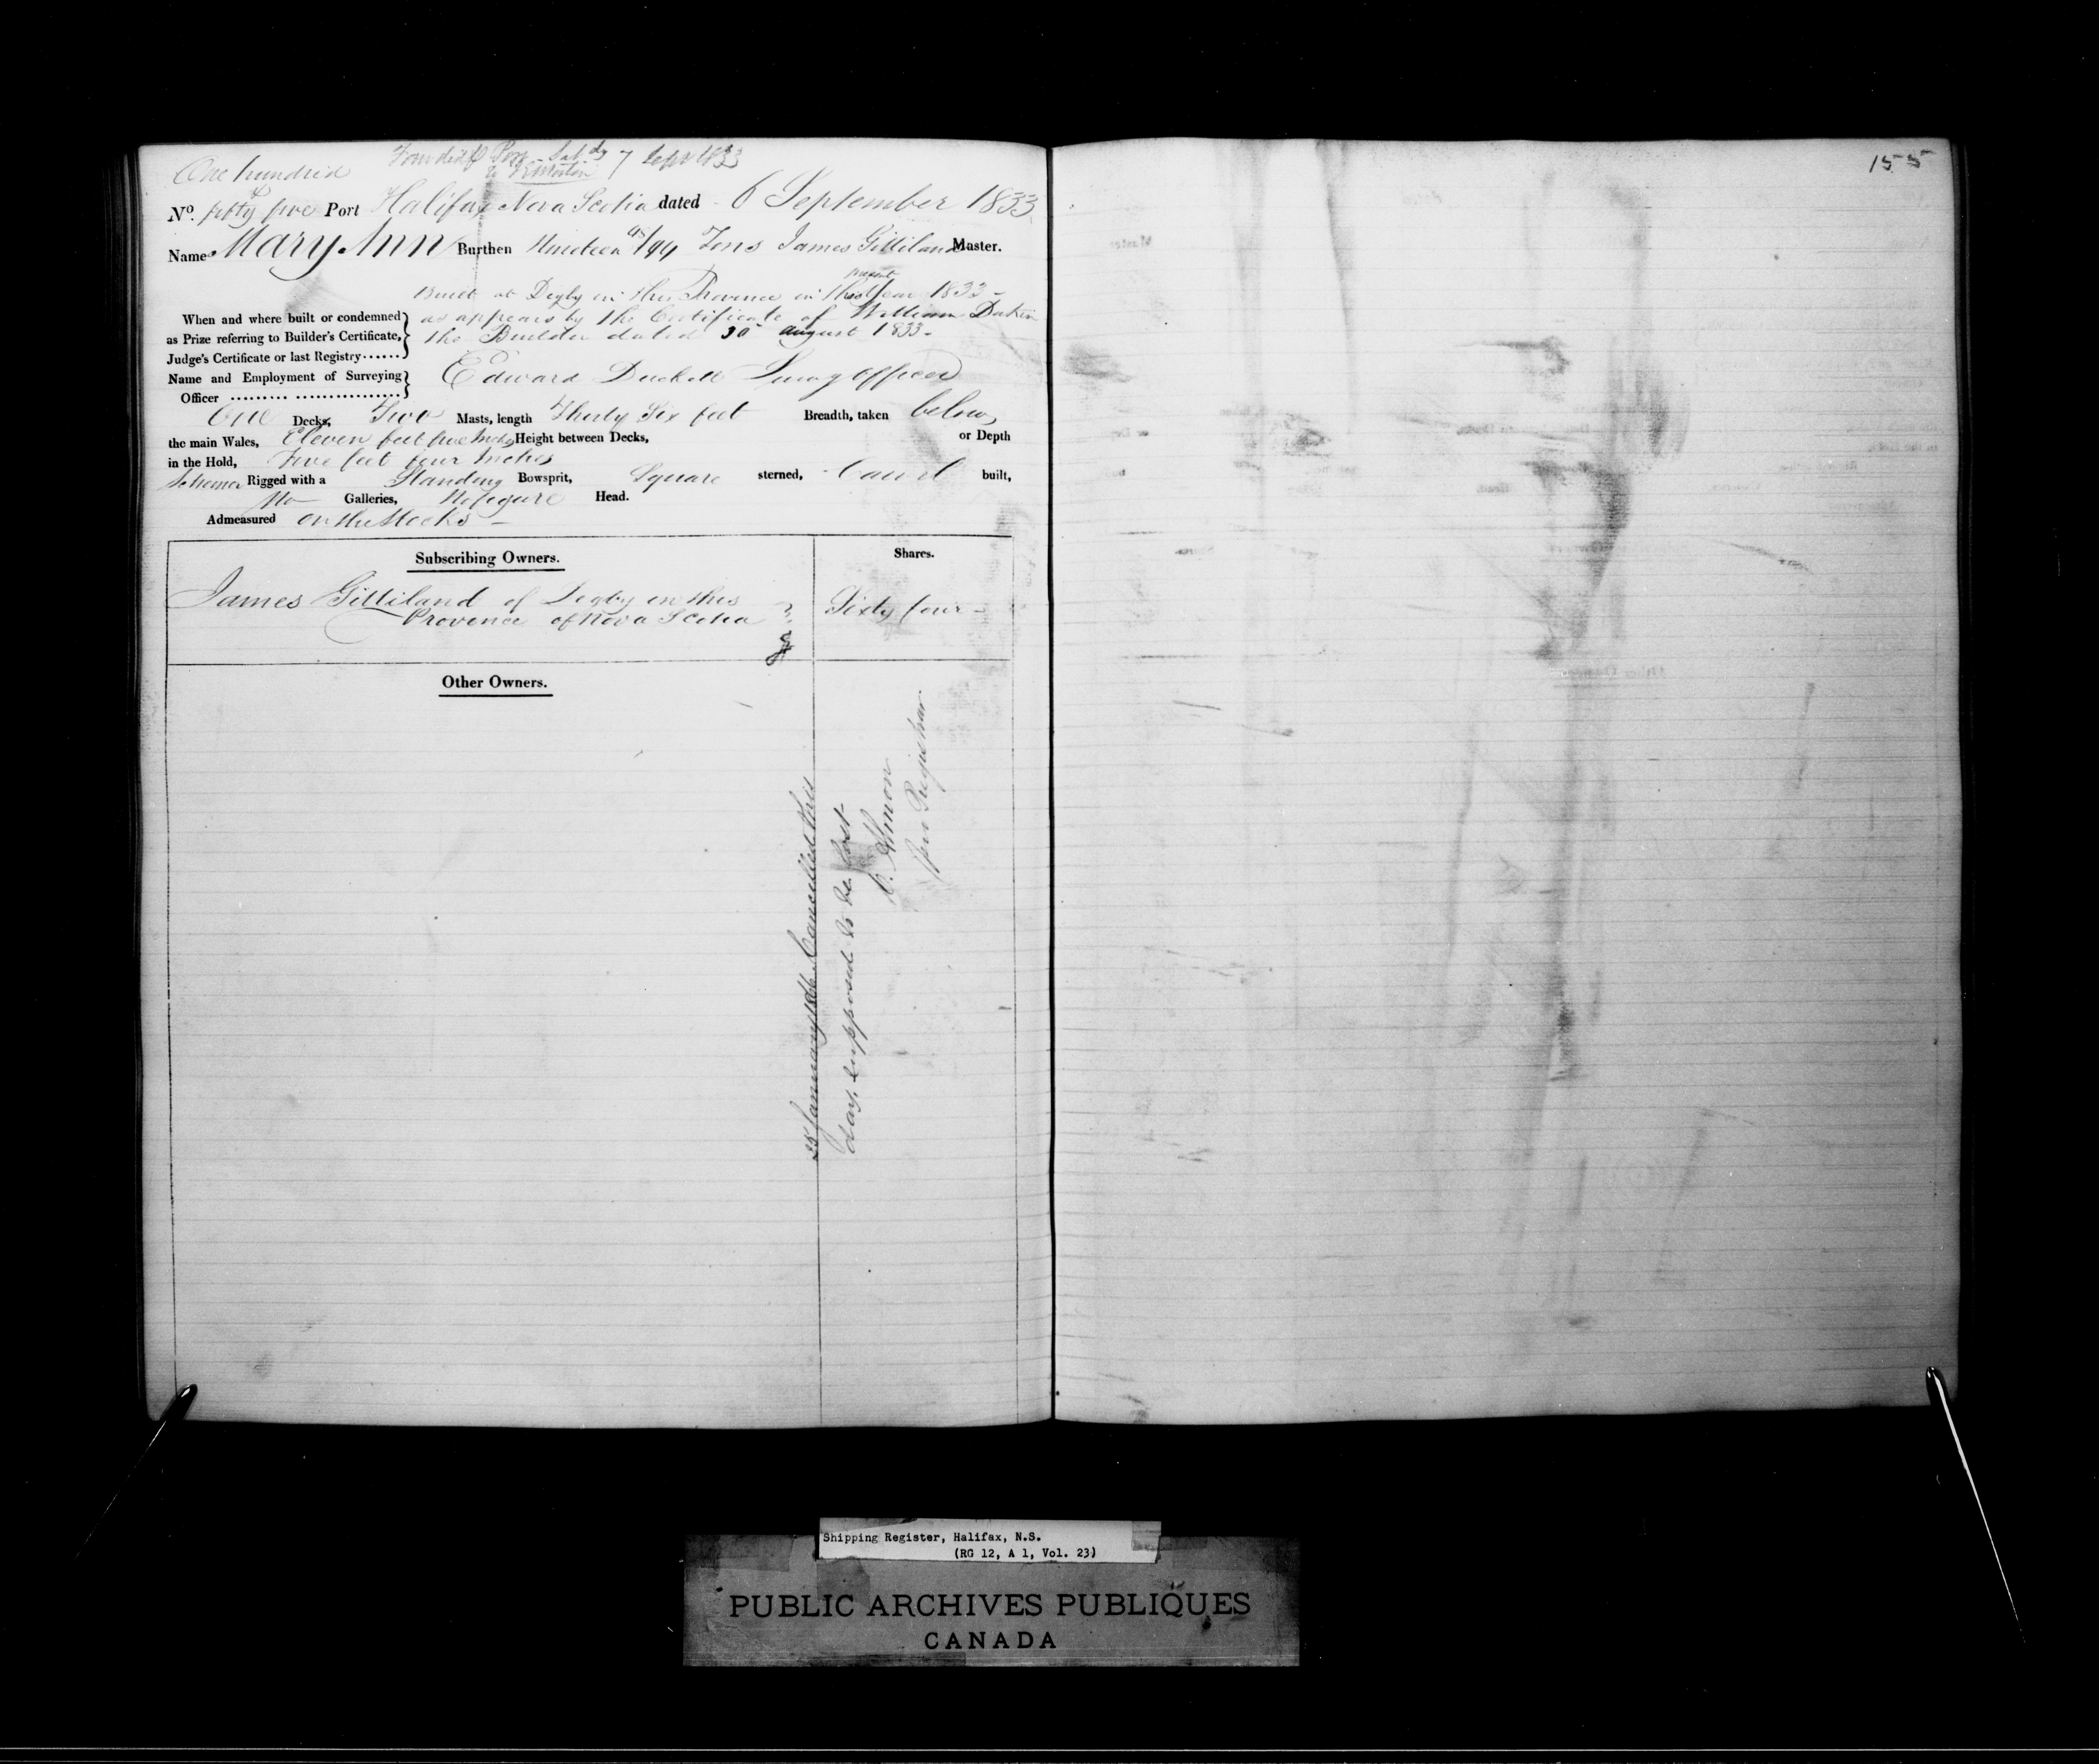 7 Sept 1833
One hundred
& fifty five
No. Port Halifax Nova Scotia dated 6 September 1833
Name Mary Ann Burthen Nineteen /94 Tons James Gilliland Master.
present
Built at Digby in this Province in the Year 1833
When and where built or condemned as appears by the Certificate of William Dakin
as Prize referring to Builder's Certificate, the Builder dated 30 august 1833
Judge's Certificate or last Registry......
Name and Employment of Surveying Edward Duckett Survg officer
Officer ......... ................
One Decks, Two Masts, length Thirty Six feet Breadth, taken below
the main Wales, Eleven feet five Inches Height between Decks, or Depth
in the Hold, Five feet four Inches
Schooner Rigged with a Standing Bowsprit, Square sterned, Carvel built,
No Galleries, No figure Head.
Admeasured on the Stocks
Subscribing Owners. Shares.
James Gilliland of Digby in this Sixty four
Province of Nova Scotia
Other Owners.
25 January Cancelled this
day, supposed to be lost
C. Almon
Registrar
155
Shipping Register, Halifax, N.S.
(RG 12, A 1, Vol. 23)
PUBLIC ARCHIVES PUBLIQUES
CANADA